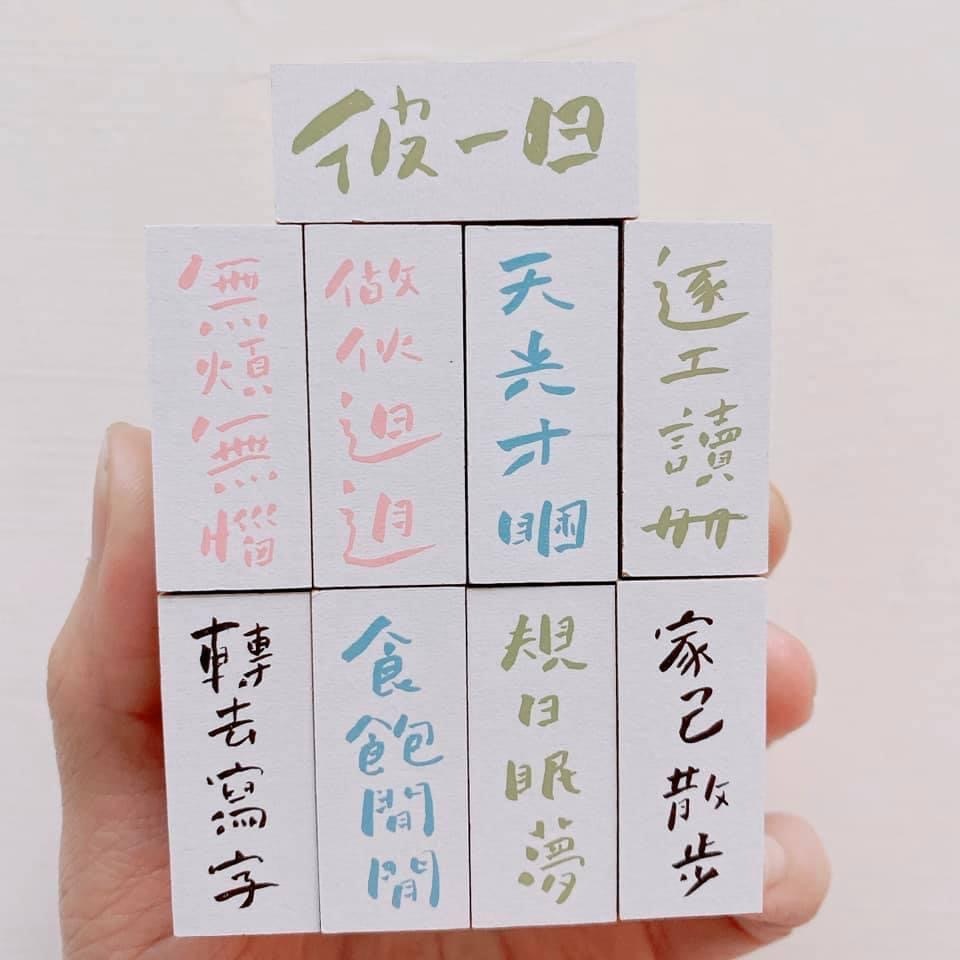 彼一日
無煩無惱
做伙𨑨迌
天光才睏
逐工讀冊
轉去寫字
食飽閒閒
規日眠夢
家己散步